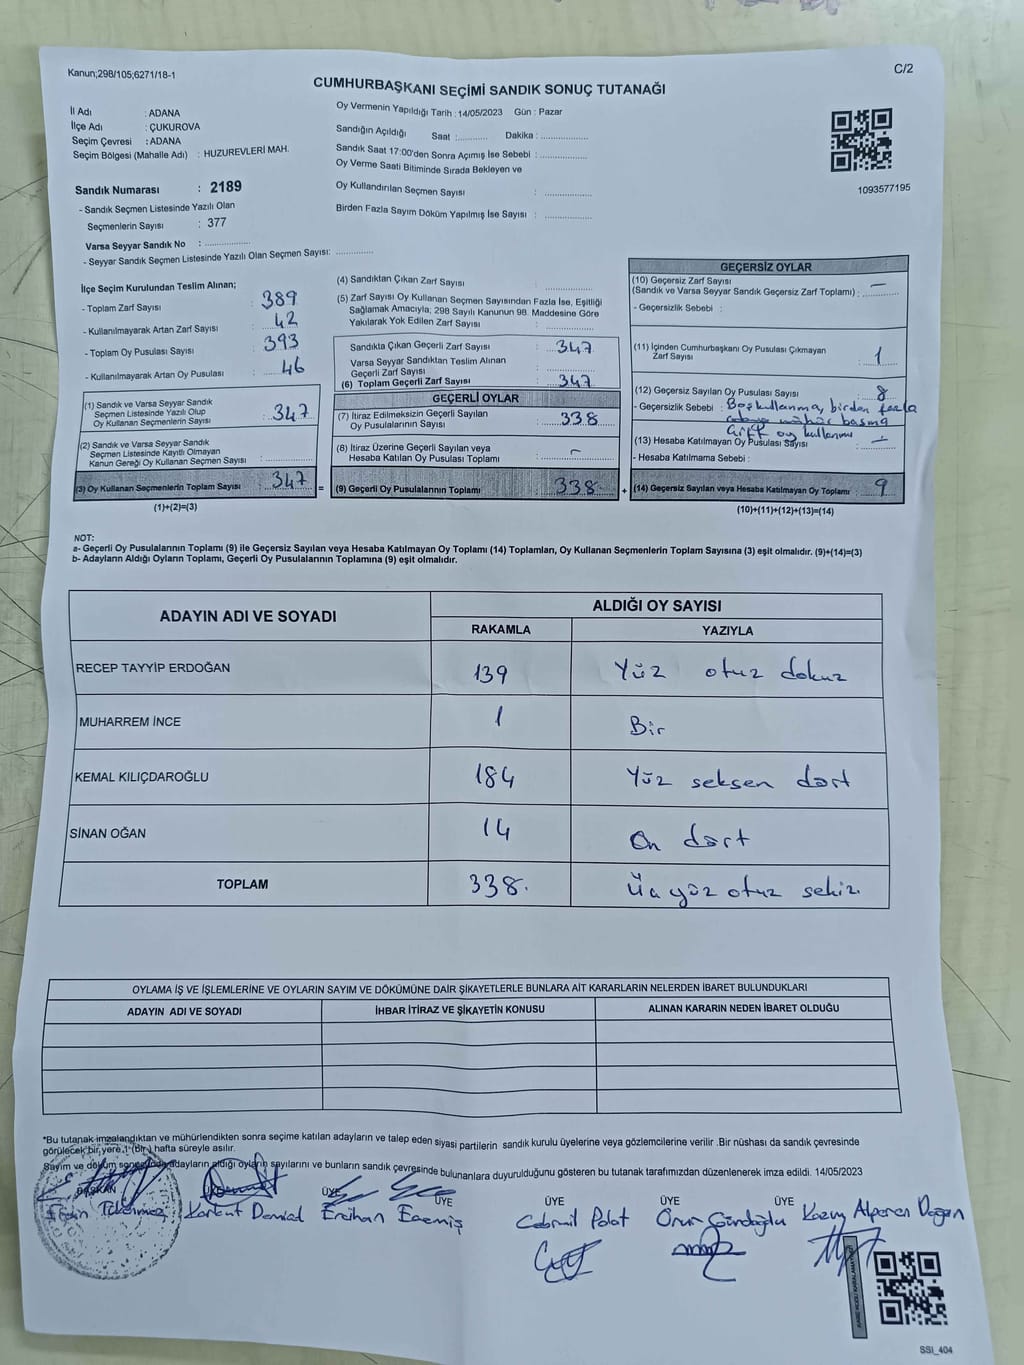 Kanun;298/105;6271/18-1
C/2
CUMHURBAŞKANI SEÇİMİ SANDIK SONUÇ TUTANAĞI
İl Adı : ADANA
İlçe Adı : ÇUKUROVA
Seçim Çevresi : ADANA
Seçim Bölgesi (Mahalle Adı) : HUZUREVLERİ MAH.
Sandık Numarası : 2189
- Sandık Seçmen Listesinde Yazılı Olan
Seçmenlerin Sayısı : 377
Varsa Seyyar Sandık No : ..............
- Seyyar Sandık Seçmen Listesinde Yazılı Olan Seçmen Sayısı: ..............
Oy Vermenin Yapıldığı Tarih : 14/05/2023 Gün : Pazar
Sandığın Açıldığı Saat :........... Dakika : ..............
Sandık Saat 17:00'den Sonra Açımış İse Sebebi : ..............
Oy Verme Saati Bitiminde Sırada Bekleyen ve
Oy Kullandırılan Seçmen Sayısı : ..............
Birden Fazla Sayım Döküm Yapılmış İse Sayısı : ..............
1093577195
İlçe Seçim Kurulundan Teslim Alınan;
- Toplam Zarf Sayısı : 389
- Kullanılmayarak Artan Zarf Sayısı : 42
- Toplam Oy Pusulası Sayısı : 393
- Kullanılmayarak Artan Oy Pusulası : 46
(1) Sandık ve Varsa Seyyar Sandık
Seçmen Listesinde Yazılı Olup
Oy Kullanan Seçmenlerin Sayısı : 347
(2) Sandık ve Varsa Seyyar Sandık
Seçmen Listesinde Kayıtlı Olmayan
Kanun Gereği Oy Kullanan Seçmen Sayısı : ..............
(3) Oy Kullanan Seçmenlerin Toplam Sayısı : 347 =
(1)+(2)=(3)
(4) Sandıktan Çıkan Zarf Sayısı : ..............
(5) Zarf Sayısı Oy Kullanan Seçmen Sayısından Fazla İse, Eşitliği
Sağlamak Amacıyla; 298 Sayılı Kanunun 98. Maddesine Göre
Yakılarak Yok Edilen Zarf Sayısı : ..............
Sandıkta Çıkan Geçerli Zarf Sayısı : 347
Varsa Seyyar Sandıktan Teslim Alınan
Geçerli Zarf Sayısı : ..............
(6) Toplam Geçerli Zarf Sayısı : 347
GEÇERLİ OYLAR
(7) İtiraz Edilmeksizin Geçerli Sayılan
Oy Pusulalarının Sayısı : 338
(8) İtiraz Üzerine Geçerli Sayılan veya
Hesaba Katılan Oy Pusulası Toplamı : -
(9) Geçerli Oy Pusulalarının Toplamı : 338 +
GEÇERSİZ OYLAR
(10) Geçersiz Zarf Sayısı
(Sandık ve Varsa Seyyar Sandık Geçersiz Zarf Toplamı) : -
- Geçersizlik Sebebi :
(11) İçinden Cumhurbaşkanı Oy Pusulası Çıkmayan
Zarf Sayısı : 1
(12) Geçersiz Sayılan Oy Pusulası Sayısı : 8
- Geçersizlik Sebebi : Boş kullanma, birden fazla
adaya mühür basma
Çift oy kullanımı
(13) Hesaba Katılmayan Oy Pusulası Sayısı : -
- Hesaba Katılmama Sebebi :
(14) Geçersiz Sayılan veya Hesaba Katılmayan Oy Toplamı : 9
(10)+(11)+(12)+(13)=(14)
NOT:
a- Geçerli Oy Pusulalarının Toplamı (9) ile Geçersiz Sayılan veya Hesaba Katılmayan Oy Toplamı (14) Toplamları, Oy Kullanan Seçmenlerin Toplam Sayısına (3) eşit olmalıdır. (9)+(14)=(3)
b- Adayların Aldığı Oyların Toplamı, Geçerli Oy Pusulalarının Toplamına (9) eşit olmalıdır.
ADAYIN ADI VE SOYADI ALDIĞI OY SAYISI
RAKAMLA YAZIYLA
RECEP TAYYİP ERDOĞAN 139 Yüz otuz dokuz
MUHARREM İNCE 1 Bir
KEMAL KILIÇDAROĞLU 184 Yüz seksen dört
SİNAN OĞAN 14 On dört
TOPLAM 338. Üç yüz otuz sekiz
OYLAMA İŞ VE İŞLEMLERİNE VE OYLARIN SAYIM VE DÖKÜMÜNE DAİR ŞİKAYETLERLE BUNLARA AİT KARARLARIN NELERDEN İBARET BULUNDUKLARI
ADAYIN ADI VE SOYADI İHBAR İTİRAZ VE ŞİKAYETİN KONUSU ALINAN KARARIN NEDEN İBARET OLDUĞU
*Bu tutanak imzalandıktan ve mühürlendikten sonra seçime katılan adayların ve talep eden siyasi partilerin sandık kurulu üyelerine veya gözlemcilerine verilir .Bir nüshası da sandık çevresinde
görülecek bir yere 1 (bir) hafta süreyle asılır.
Sayım ve döküm sonucunda adayların aldığı oyların sayılarını ve bunların sandık çevresinde bulunanlara duyurulduğunu gösteren bu tutanak tarafımızdan düzenlenerek imza edildi. 14/05/2023
BAŞKAN ÜYE ÜYE ÜYE ÜYE ÜYE
Korkut Demical Ercihan Ecemiş Cebrail Polat Onur Gürdoğdu Kazım Alperen Doğan
SSI_404